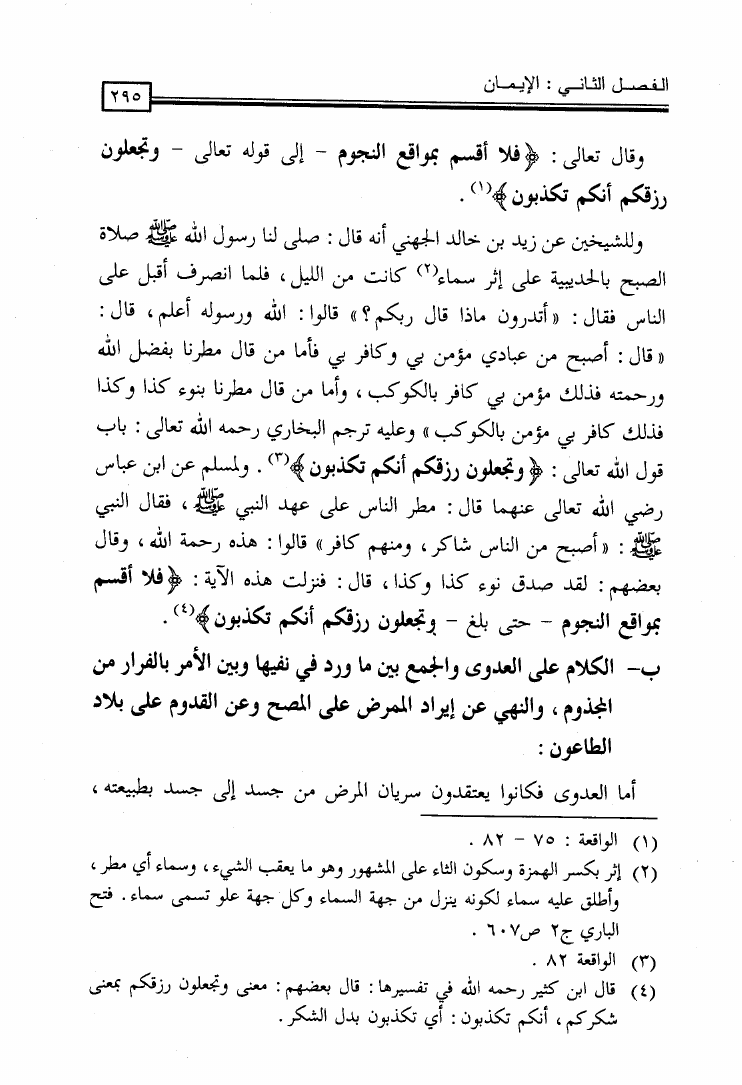 الفصل الثاني : الإيمان
٢٩٥
وقال تعالى : ﴿ فلا أقسم بمواقع النجوم – إلى قوله تعالى – وتجعلون
رزقكم أنكم تكذبون ﴾(١) .
وللشيخين عن زيد بن خالد الجهني أنه قال : صلى لنا رسول الله ﷺ صلاة
الصبح بالحديبية على إثر سماء(٢) كانت من الليل ، فلما انصرف أقبل على
الناس فقال : « أتدرون ماذا قال ربكم ؟ » قالوا : الله ورسوله أعلم ، قال :
« قال : أصبح من عبادي مؤمن بي وكافر بي فأما من قال مطرنا بفضل الله
ورحمته فذلك مؤمن بي كافر بالكوكب ، وأما من قال مطرنا بنوء كذا وكذا
فذلك كافر بي مؤمن بالكوكب » وعليه ترجم البخاري رحمه الله تعالى : باب
قول الله تعالى : ﴿ وتجعلون رزقكم أنكم تكذبون ﴾(٣) . ولمسلم عن ابن عباس
رضي الله تعالى عنهما قال : مطر الناس على عهد النبي ﷺ ، فقال النبي
ﷺ : « أصبح من الناس شاكر ، ومنهم كافر » قالوا : هذه رحمة الله ، وقال
بعضهم : لقد صدق نوء كذا وكذا ، قال : فنزلت هذه الآية : ﴿ فلا أقسم
بمواقع النجوم – حتى بلغ – وتجعلون رزقكم أنكم تكذبون ﴾(٤) .
ب– الكلام على العدوى والجمع بين ما ورد في نفيها وبين الأمر بالفرار من
المجذوم ، والنهي عن إيراد الممرض على المصح وعن القدوم على بلاد
الطاعون :
أما العدوى فكانوا يعتقدون سريان المرض من جسد إلى جسد بطبيعته ،
(١) الواقعة : ٧٥ – ٨٢ .
(٢) إثر بكسر الهمزة وسكون الثاء على المشهور وهو ما يعقب الشيء ، وسماء أي مطر ،
وأطلق عليه سماء لكونه ينزل من جهة السماء وكل جهة علو تسمى سماء . فتح
الباري ج٢ ص٦٠٧ .
(٣) الواقعة ٨٢ .
(٤) قال ابن كثير رحمه الله في تفسيرها : قال بعضهم : معنى وتجعلون رزقكم بمعنى
شكركم ، أنكم تكذبون : أي تكذبون بدل الشكر .